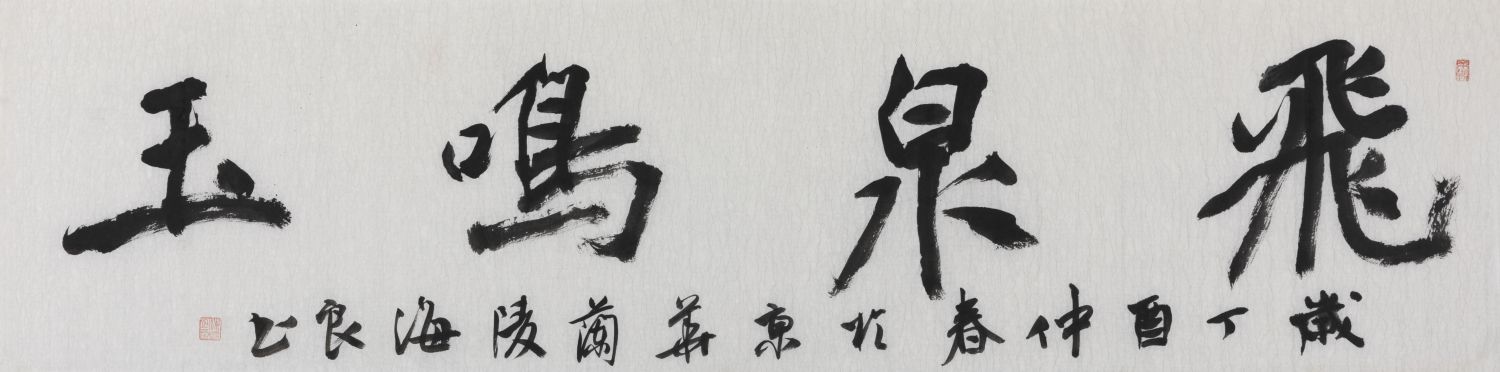 飛泉鳴玉
歲丁酉仲春於京華蘭陵海良书